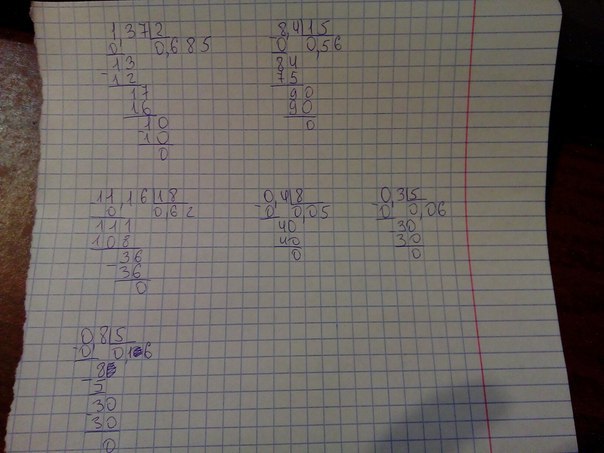 1,37|2
0 0,685
13
-12
17
16
10
-10
0
8,4|15
0 0,56
84
75
90
90
0
11,16|18
0 0,62
111
108
36
-36
0
0,4|8
-0 0,05
40
40
0
0,3|5
-0 0,06
30
30
0
0,8|5
-0 0,16
8
-5
30
-30
0